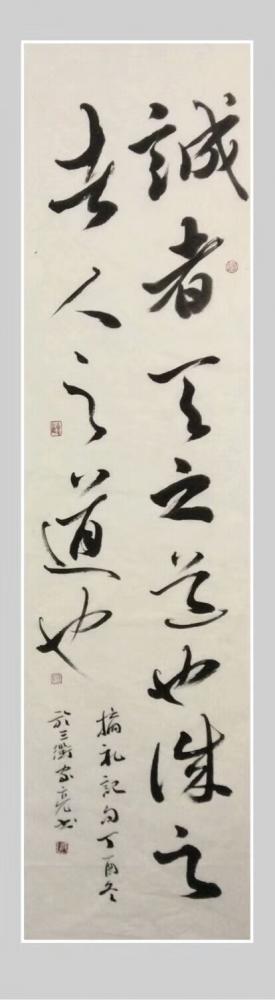 誠者天之道也诚之
者人之道也
摘礼記句丁酉冬
於三衢家亮书